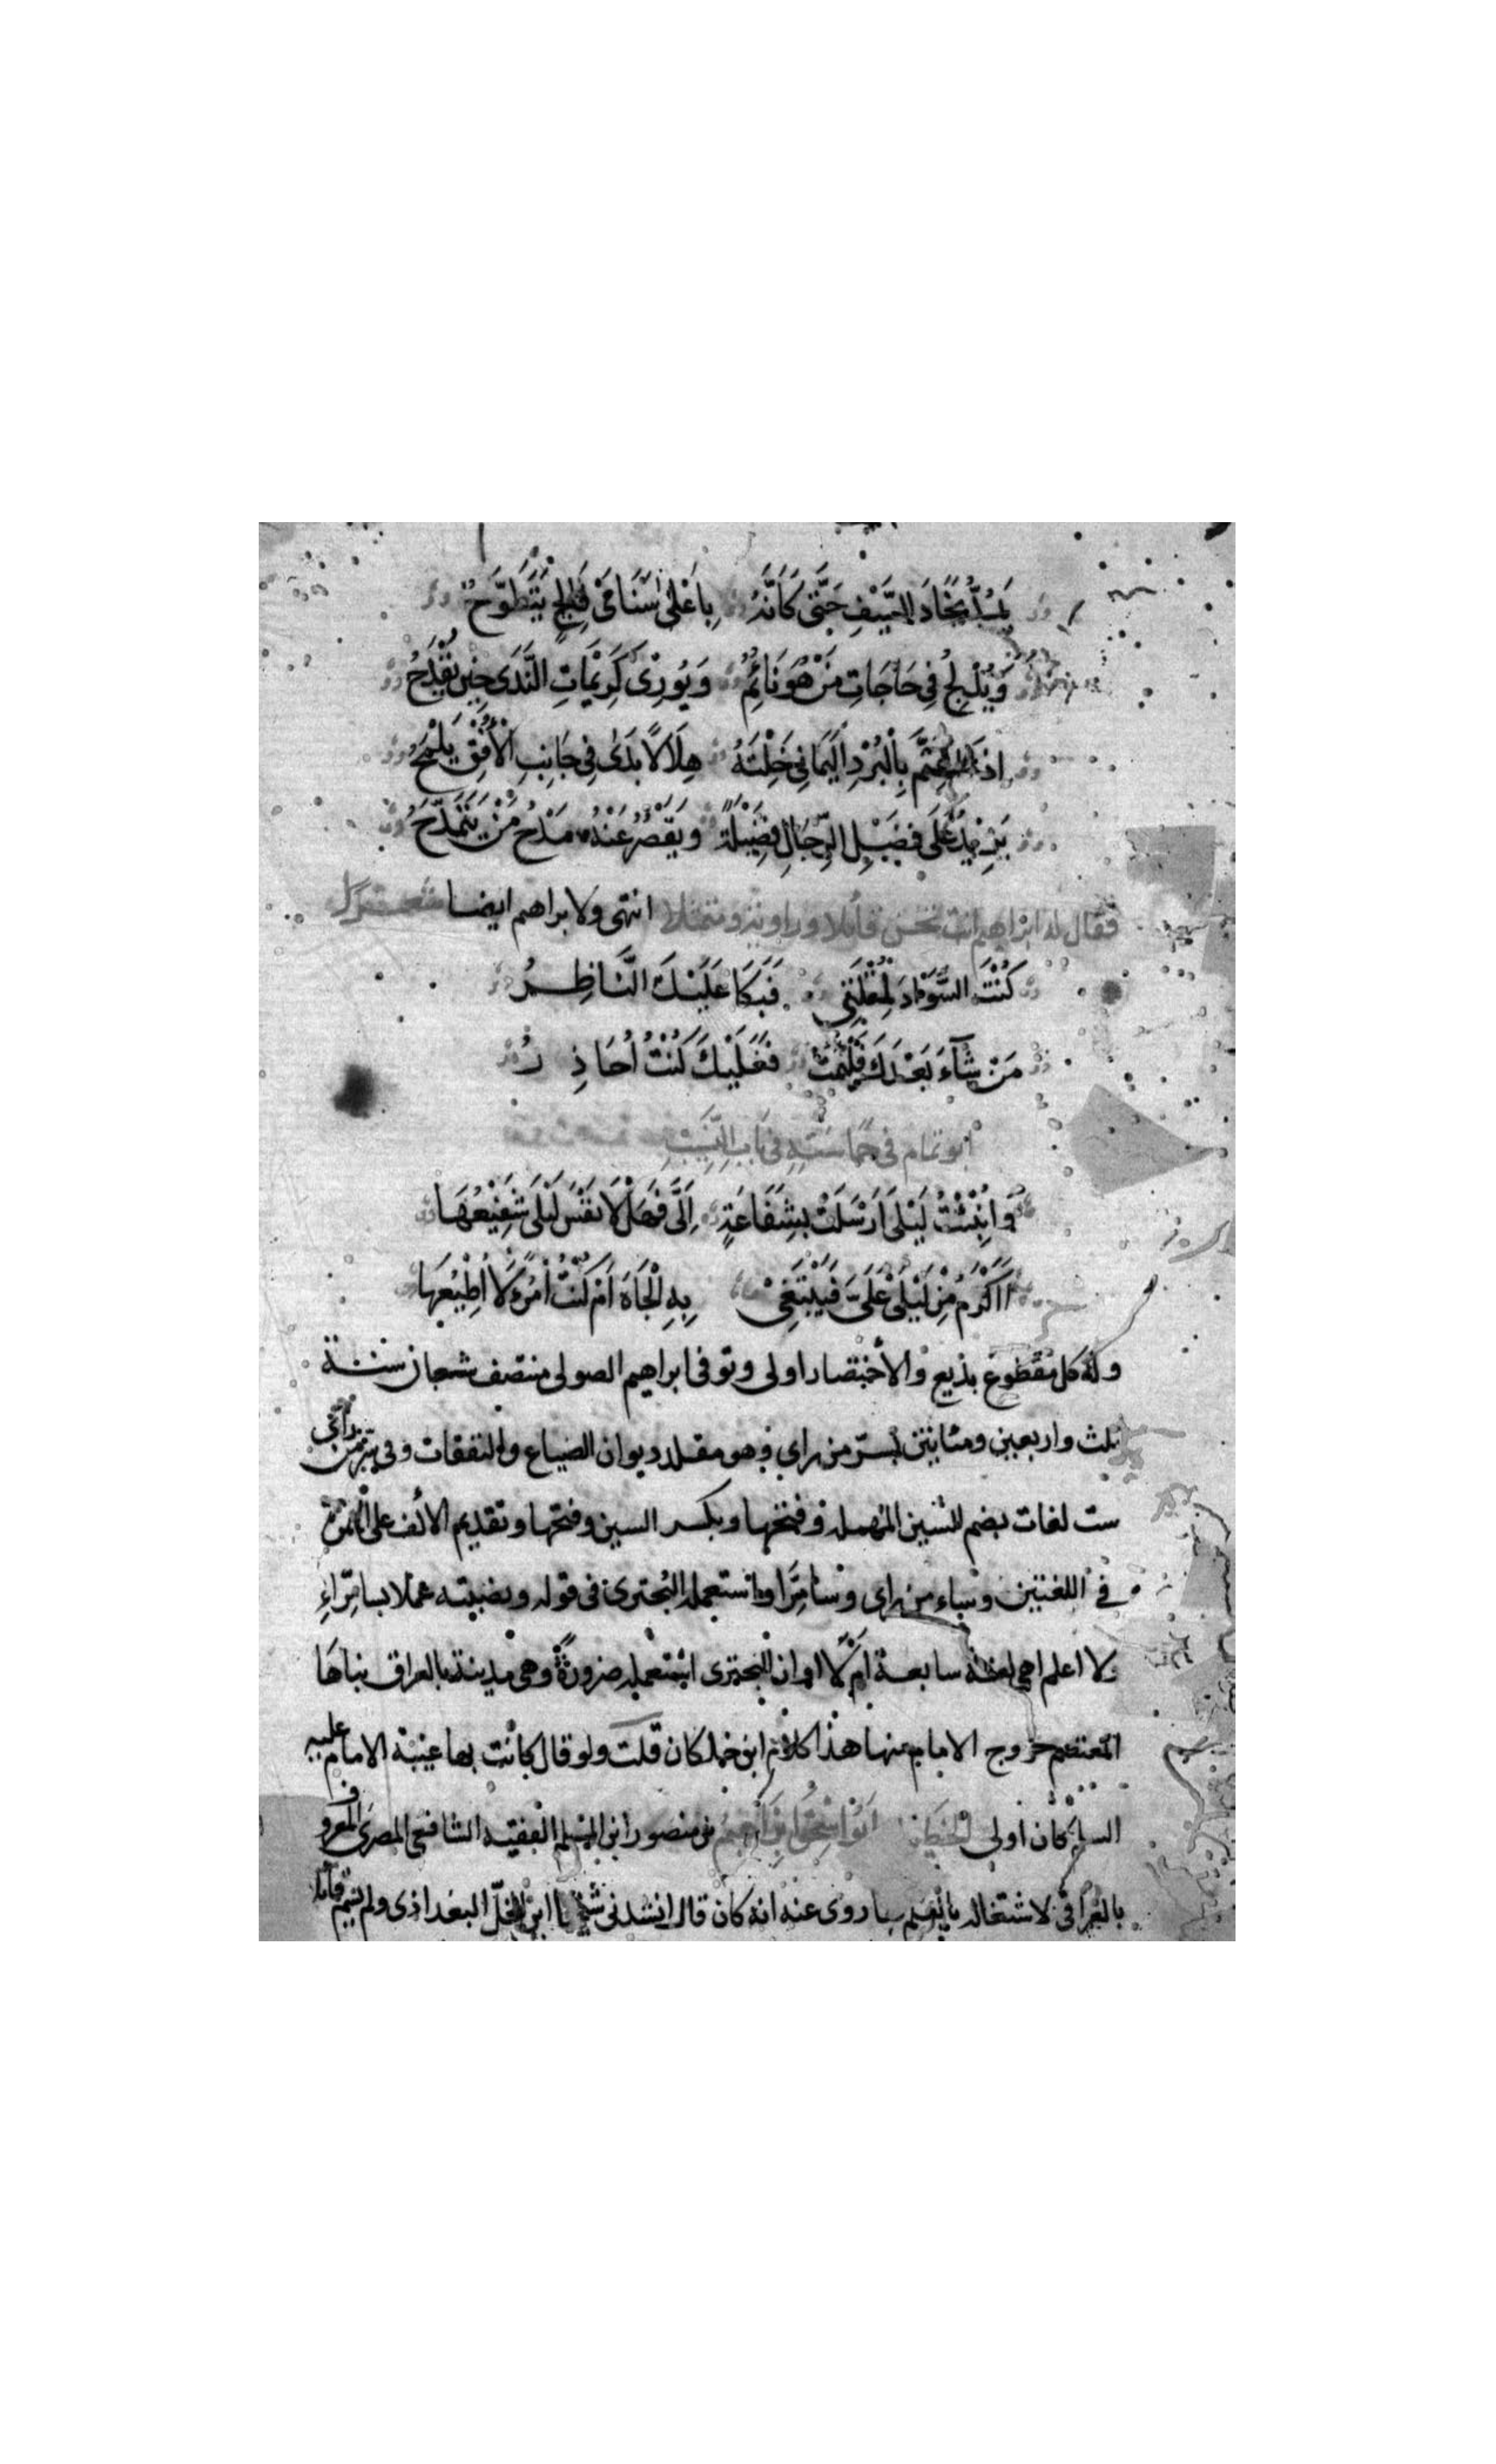 يَمُدُّ نِجَادَ السَّيْفِ حَتَّى كَأَنَّهُ بِأَعْلَى سَنَامَيْ فَالِجٍ يَتَطَوَّحُ
وَيُدْلِجُ فِي حَاجَاتِ مَنْ هُوَ نَائِمٌ وَيُورِى كَرِيْمَاتِ النَّدَى حِيْنَ يَقْدَحُ
اذا اعْتَمَّ بِالْبُرْدِ الْيَمَانِي خِلْتَهُ هِلَالًا بَدَى فِي جَانِبِ الْأُفُقِ يَلْمَحُ
يَزِيْدُ عَلَى فَضْلِ الرِّجَالِ فَضِيْلَةً وَيَقْصُرُ عَنْهُ مَدْحُ مَنْ يَتَمَدَّحُ
فقال له ابراهيم انت تحسن قائلا وراوية ومتمثلا انتهى ولابراهيم ايضا
كُنْتَ السَّوَادَ لِمُقْلَتِي فَبَكَا عَلَيْكَ النَّاظِرُ
مَنْ شَآءَ بَعْدَكَ فَلْيَمُتْ فَعَلَيْكَ كُنْتُ اُحَاذِرُ
ابو تمام في حماسته في باب النسيب
وَاُنْبِئْتُ لَيْلَى اَرْسَلَتْ بِشَفَاعَةٍ اِلَيَّ فَهَلَّا نَفْسُ لَيْلَى شَفِيْعُهَا
أَاَكْرَمُ مِنْ لَيْلَى عَلَيَّ فَيَبْتَغِيْ بِهِ الْجَاهَ اَمْ كُنْتُ امْرَءً لَا اُطِيْعُهَا
وله كل مقطوع بديع والاختصار اولى وتوفى ابراهيم الصولى منتصف شعبان سنة
ثلث واربعين ومئايتين بسر من راي وهو مقلد ديوان الضياع والنفقات وفى سر من رآى
ست لغات بضم السين المهملة وفتحها وبكسر السين وفتحها وتقديم الالف على الهمزة
في اللغتين وساء من راى وسامرا واستعمله البحترى في قوله ونصبته علما بسامراءِ
ولا اعلم اهي لغة سابعة أم لا ام ان البحترى استعمله ضرورة وهى مدينة بالعراق بناها
المعتصم خروج الامام منها هذا كلام ابن خلكان قلت ولو قال كانت بها غيبة الامام عليه
السلام كان اولى ابو اسحق ابراهيم بن منصور ابن المسلم الفقيه الشافعى المصرى المعروف
بالعراقى لاشتغاله روى عنه انه كان قال انشدنى شيخنا ابن الخل البغداذى ولم يسم قائله